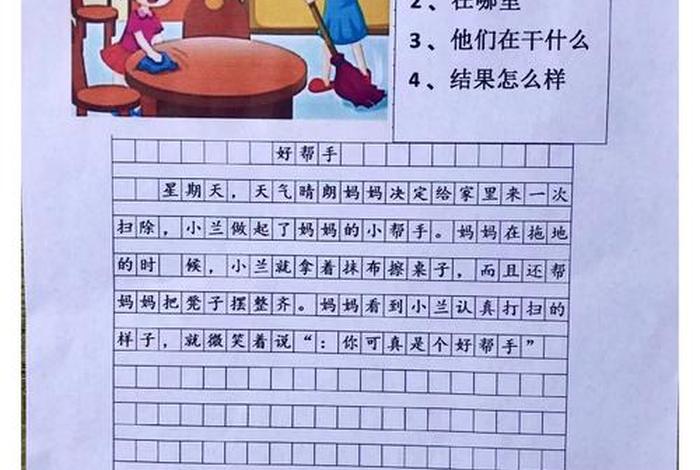 2、在哪里
3、他们在干什么
4、结果怎么样
好帮手
星期天，天气晴朗妈妈决定给家里来一次
扫除，小兰做起了妈妈的小帮手。妈妈在拖地
的时 候，小兰就拿着抹布擦桌子，而且还帮
妈妈把凳子摆整齐。妈妈看到小兰认真打扫的
样子，就微笑着说“：你可真是个好帮手”